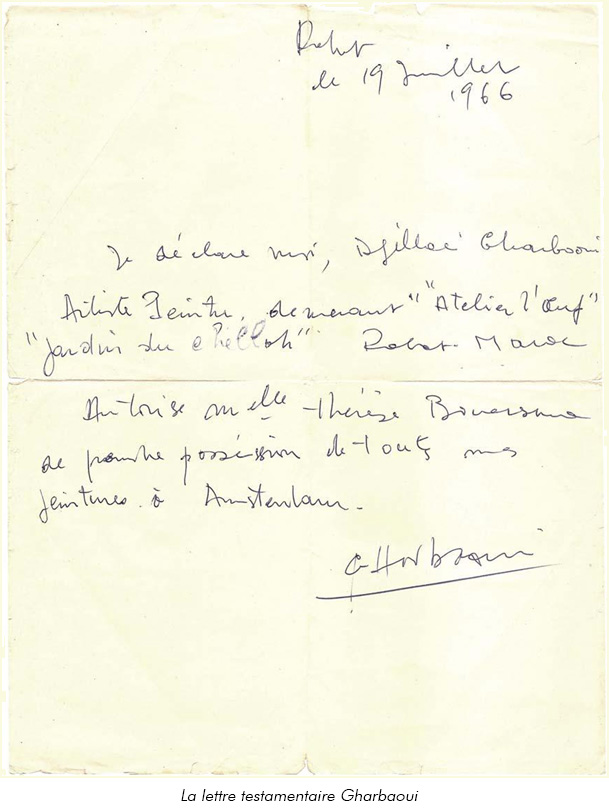 Rabat
le 19 Juillet
1966
Je déclare moi, Djillali Gharbaoui
Artiste Peintre, demeurant "Atelier l'œuf"
"Jardin du chellah" Rabat-Maroc
Autorise Melle thérèse
de prendre possession de toutes mes
peintures à Amsterdam.
GHarbaoui
La lettre testamentaire Gharbaoui